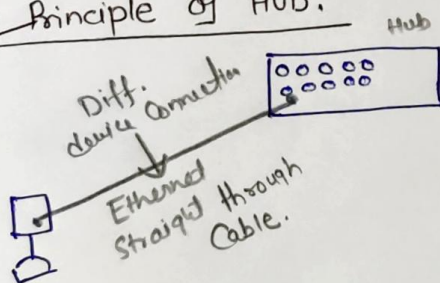 Principle of HUB.
Hub
Diff.
device Connection
Etherned
Straight through
Cable.